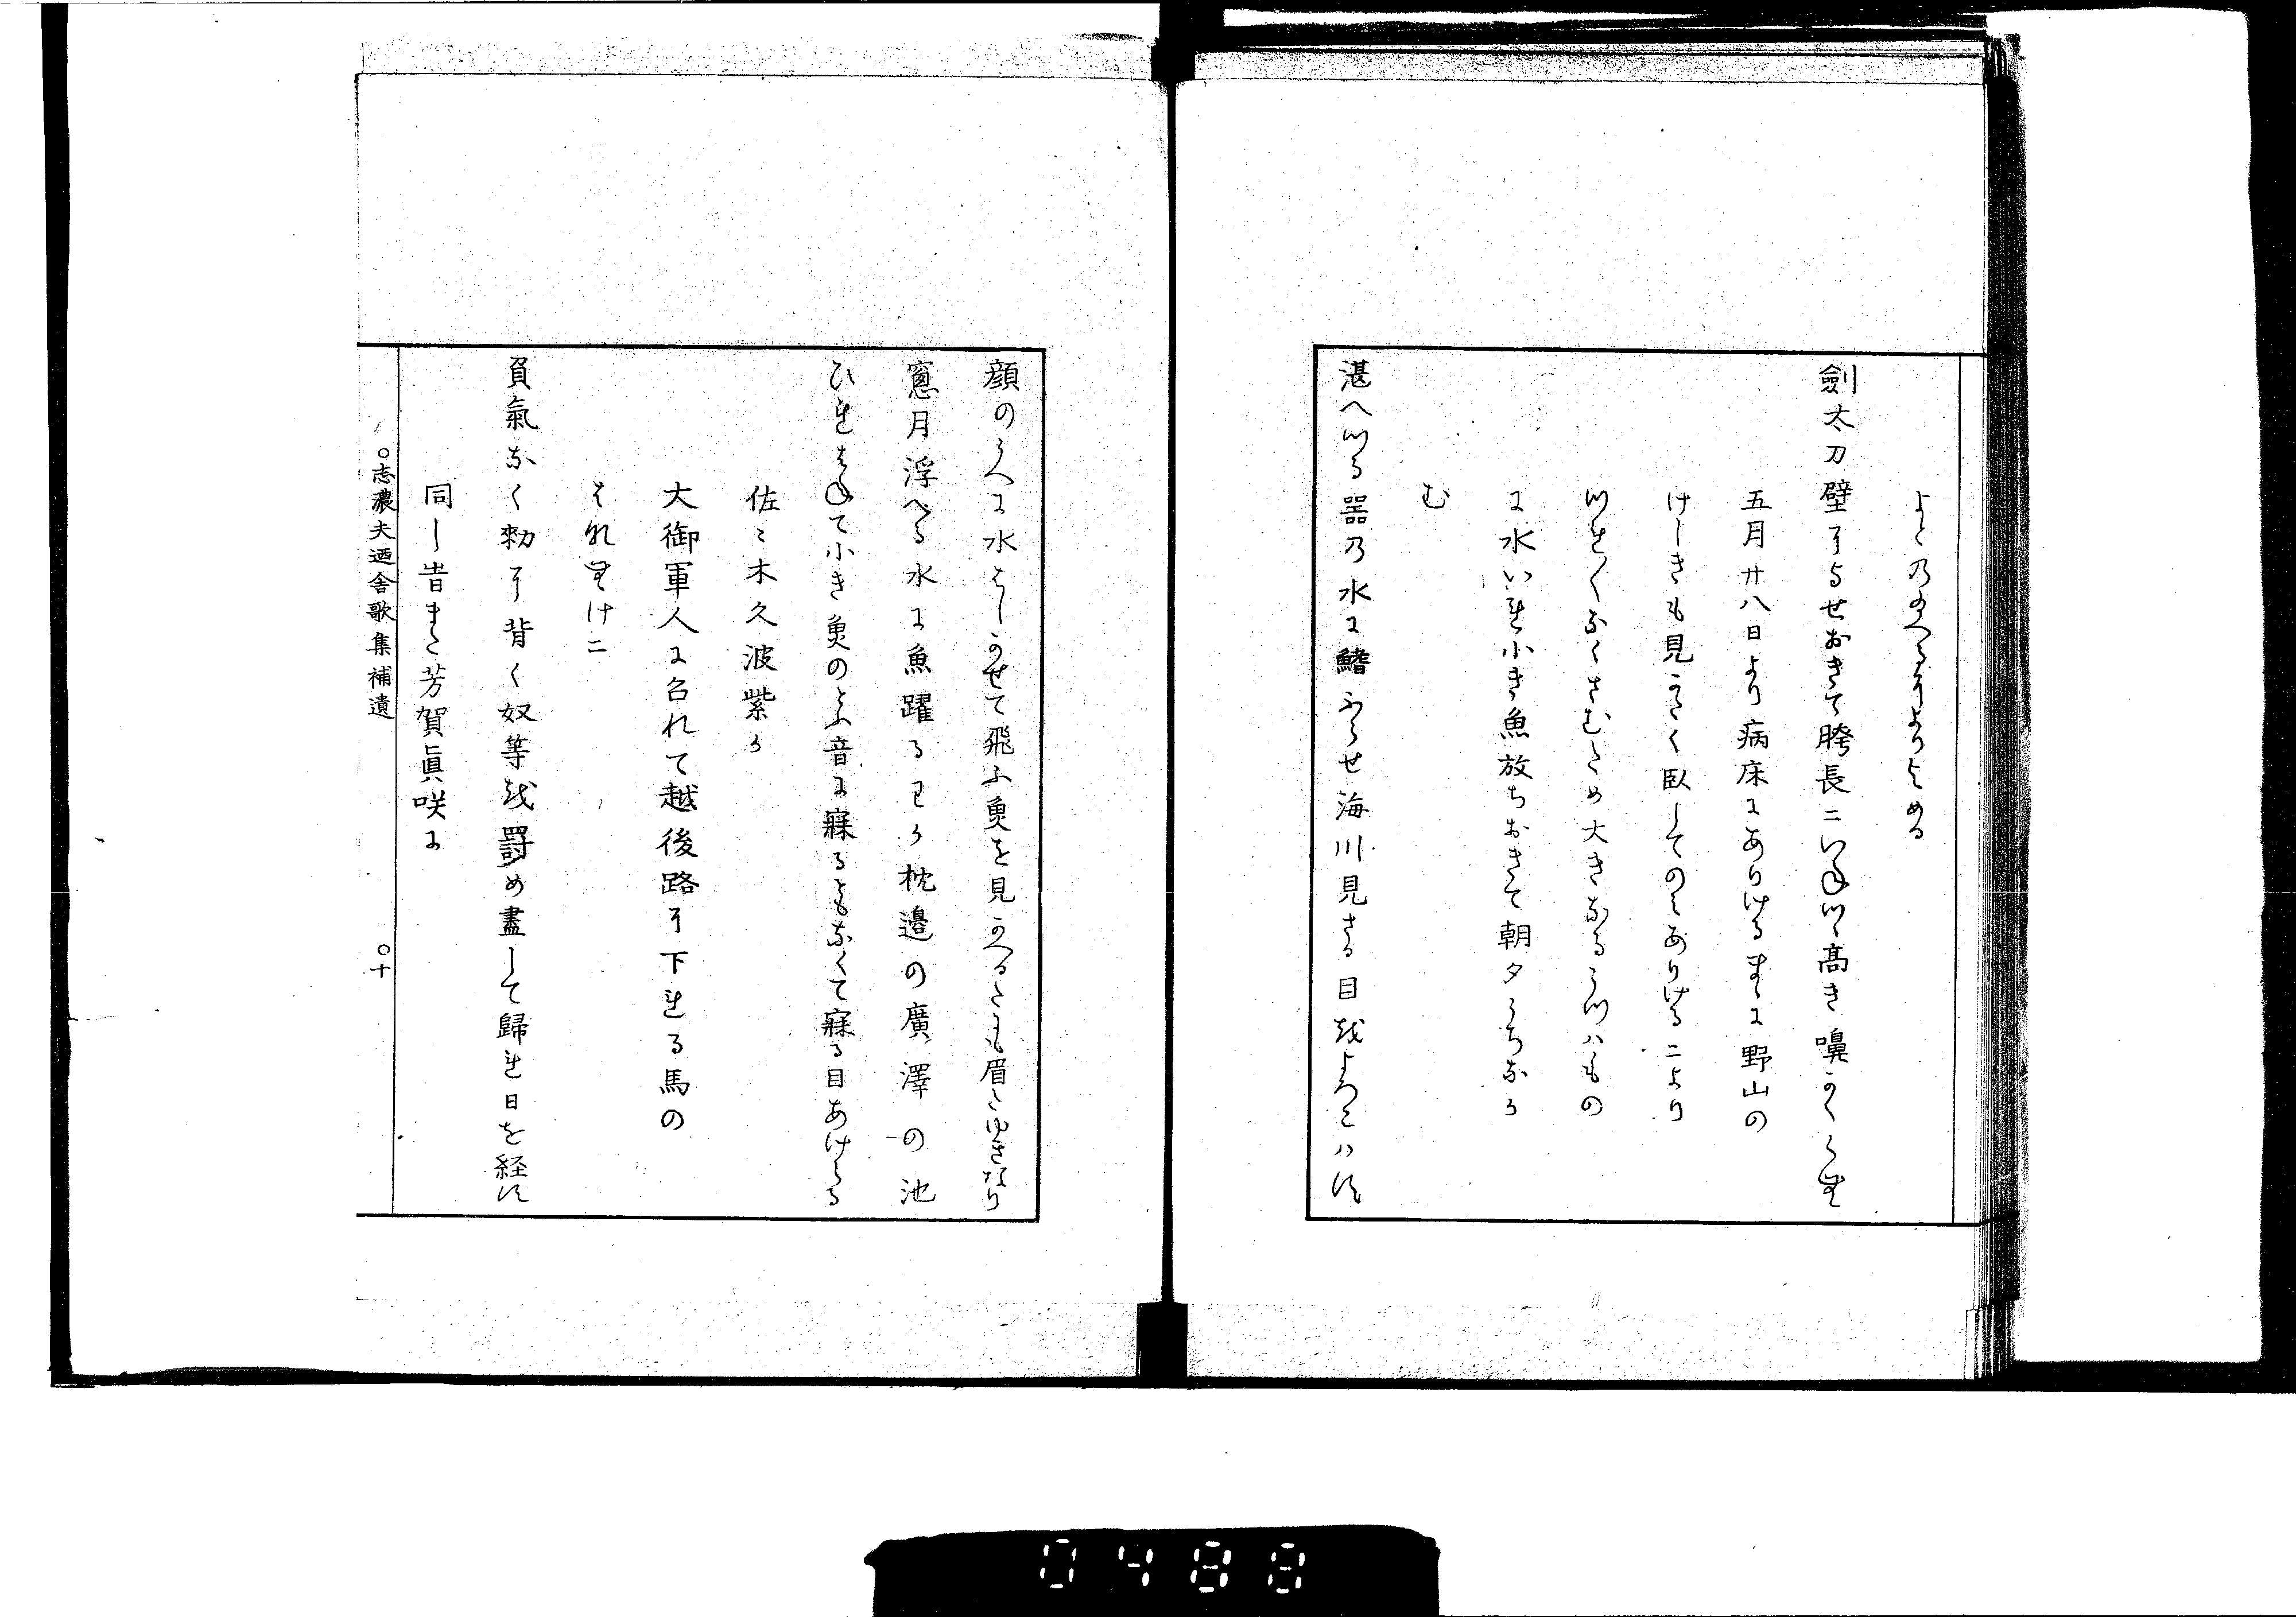 よとのゝへるによりよめる
劔太刀壁によせおきて膀長にいねつゝ高き嚊かくらむ
五月廿八日より病床にありけるまゝに野山の
けしきも見かたく臥してのみありけるにより
つれ〱なくさむため大きなるうつはもの
に水いれ小き魚放ちおきて朝夕うちなか
む
湛へつる器の水に鰭ふらせ海川見さる目をよろこはす
顔のうへに水はしかせて飛ふ魚を見かへるたにも眉たゆきなり
窓月浮へる水に魚躍るわか枕邉の廣澤の池
ひれはねて小き魚のとふ音に寐るともなくて寐る目あけらる
佐〻木久波紫か
大御軍人に召れて越後路に下れる馬の
はなむけに
負氣なく勅に背く奴等を罸め盡して歸れ日を経す
同し昔また芳賀眞咲に
○志濃夫廼舎歌集補遺 ○十
0488